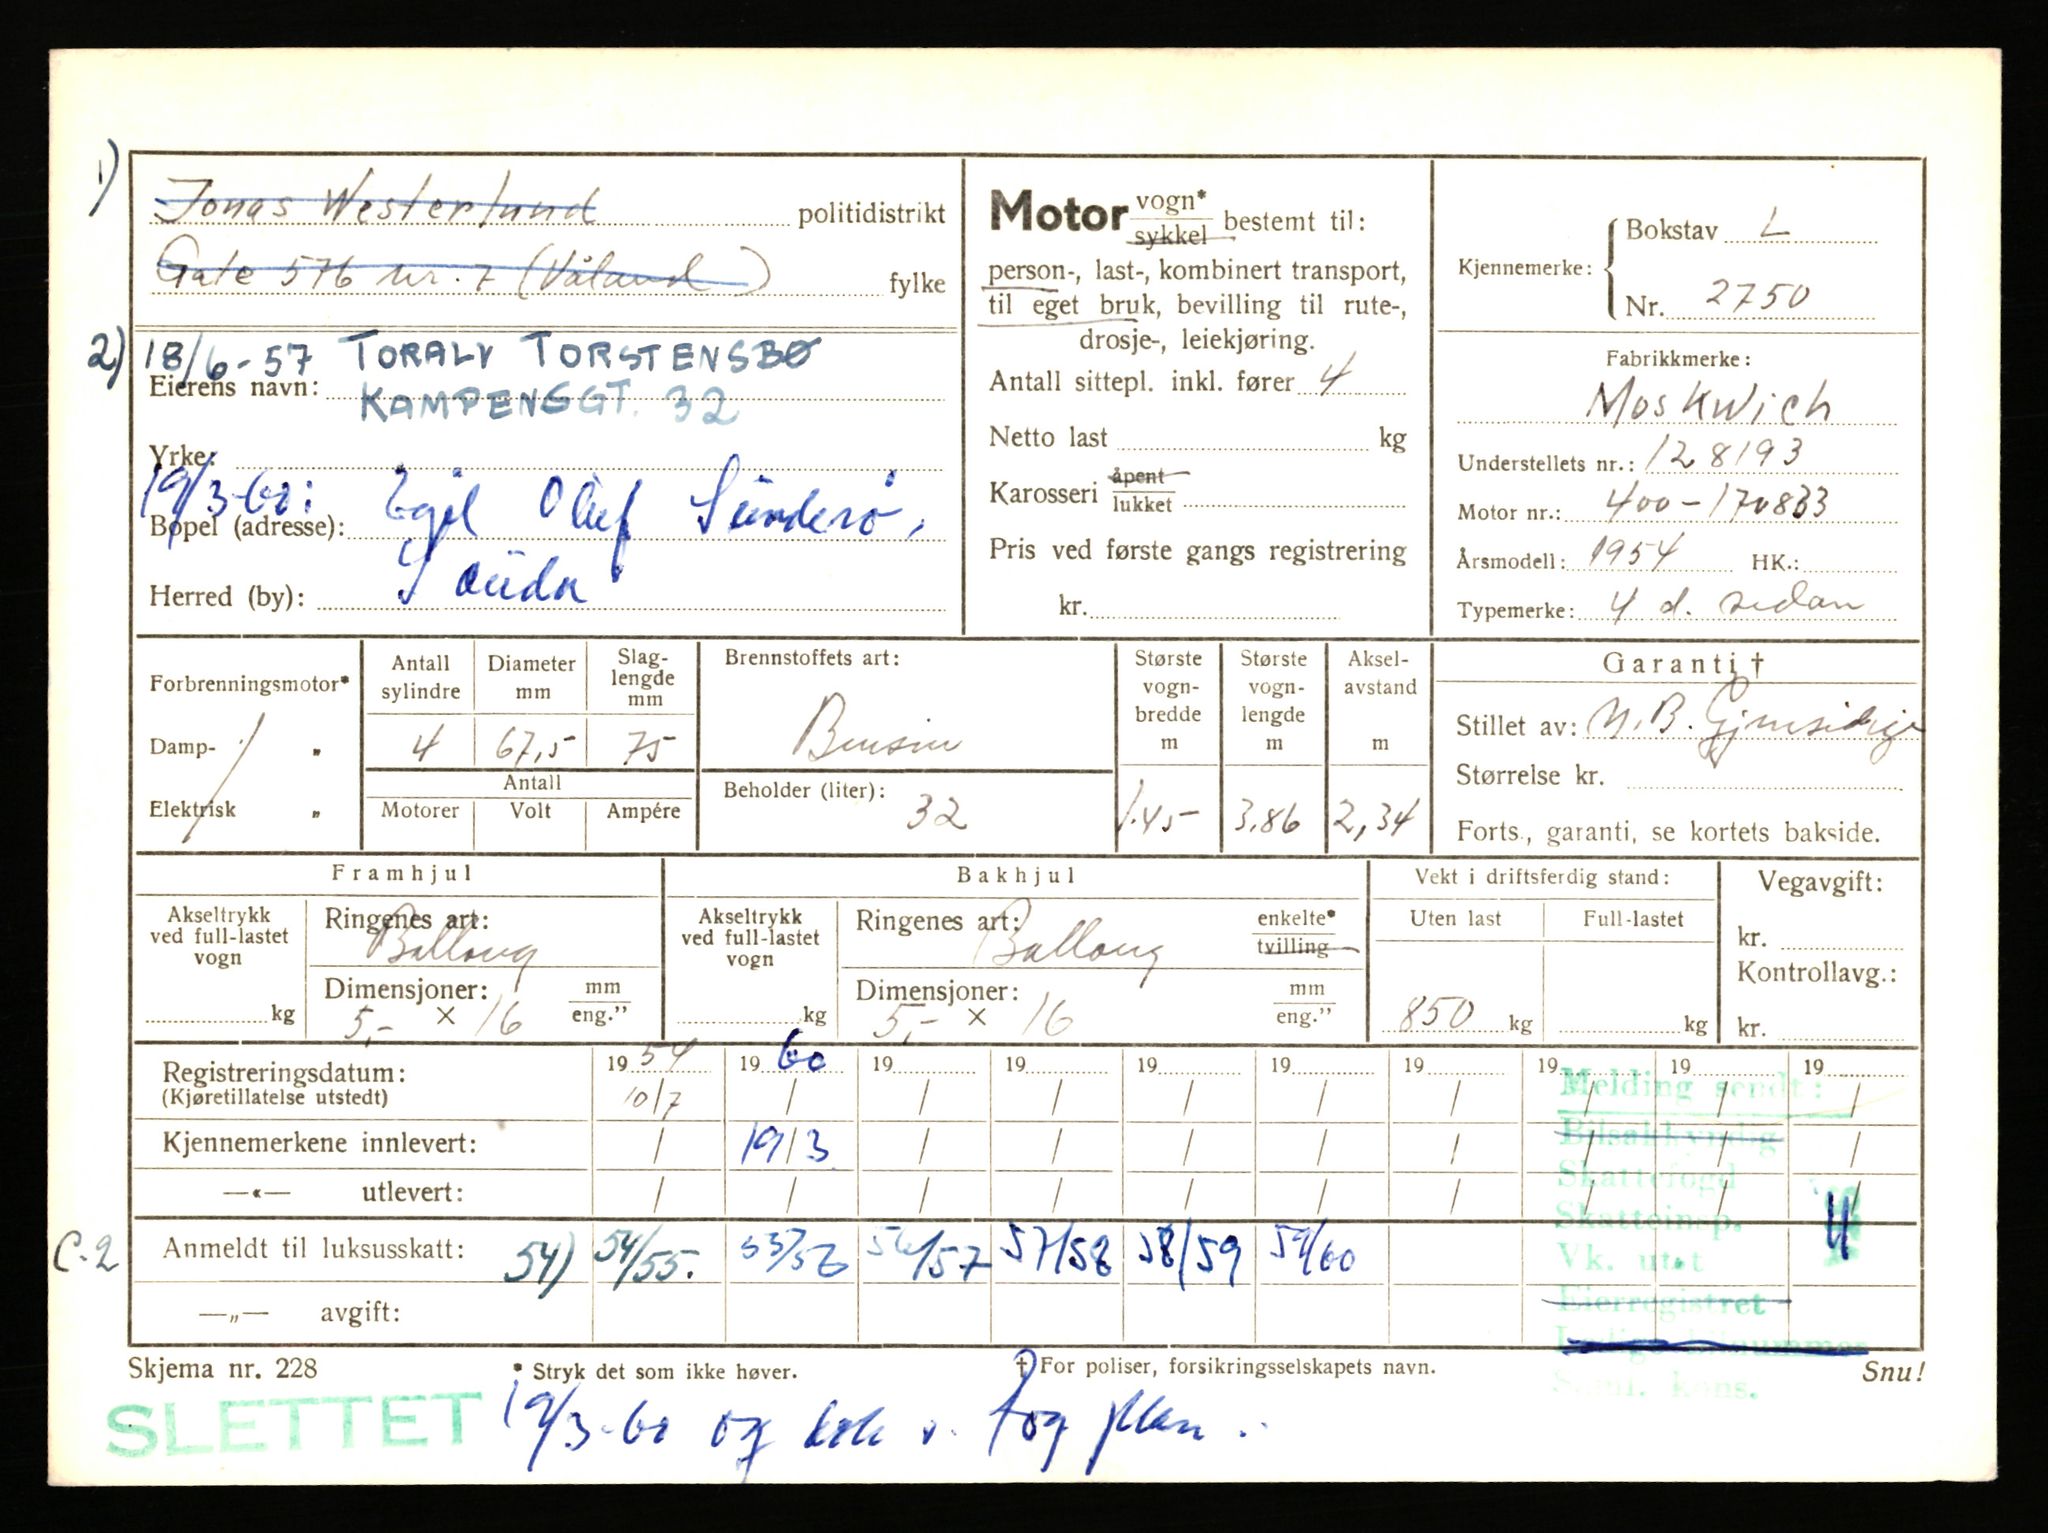 1) Jonas Westerlund politidistrikt
Gate 576 nr. 7 (Våland) fylke
2) 18/6-57 TORALV TORSTENSBØ
Eierens navn: KAMPENSGT. 32
Yrke:
19/3-60: Egil Oluf Sunderø,
Bopel (adresse):
Sauda
Herred (by):
Motor vogn* sykkel bestemt til:
person-, last-, kombinert transport,
til eget bruk, bevilling til rute-,
drosje-, leiekjøring.
Antall sittepl. inkl. fører 4
Netto last kg
Karosseri åpent lukket
Pris ved første gangs registrering
kr.
Kjennemerke: Bokstav L
Nr. 2750
Fabrikkmerke:
Moskwich
Understellets nr.: 128193
Motor nr.: 400-170833
Årsmodell: 1954 HK.:
Typemerke: 4 d. sedan
Forbrenningsmotor*
Damp- "
Elektrisk "
Antall sylindre
4
Diameter mm
67,5
Slag-lengde mm
75
Antall
Motorer Volt Ampére
Brennstoffets art:
Bensin
Beholder (liter):
32
Største vogn-bredde m
1.45
Største vogn-lengde m
3.86
Aksel-avstand m
2,34
Garanti †
Stillet av: N.B. Gjensidige
Størrelse kr.
Forts., garanti, se kortets bakside.
Framhjul
Akseltrykk ved full-lastet vogn
kg
Ringenes art:
Ballong
Dimensjoner: mm
5,- × 16 eng."
Bakhjul
Akseltrykk ved full-lastet vogn
kg
Ringenes art: enkelte* tvilling
Ballong
Dimensjoner: mm
5,- × 16 eng."
Vekt i driftsferdig stand:
Uten last Full-lastet
850 kg kg
Vegavgift:
kr.
Kontrollavg.:
kr.
Registreringsdatum: 1954 1960 19 19 19 19 19 19 19 19
(Kjøretillatelse utstedt) 10/7 / / / / / / / / /
Kjennemerkene innlevert: / 19/3 / / / / / / / /
—«— utlevert: / / / / / / / / / /
C-2 Anmeldt til luksusskatt: 54) 54/55. 55/56 56/57 57/58 58/59 59/60
—„— avgift:
Melding sendt:
Skattefogd
Skatteinsp.
Vk. utst
Eierregistret
Skjema nr. 228 * Stryk det som ikke høver. † For poliser, forsikringsselskapets navn. Snu!
SLETTET 19/3-60